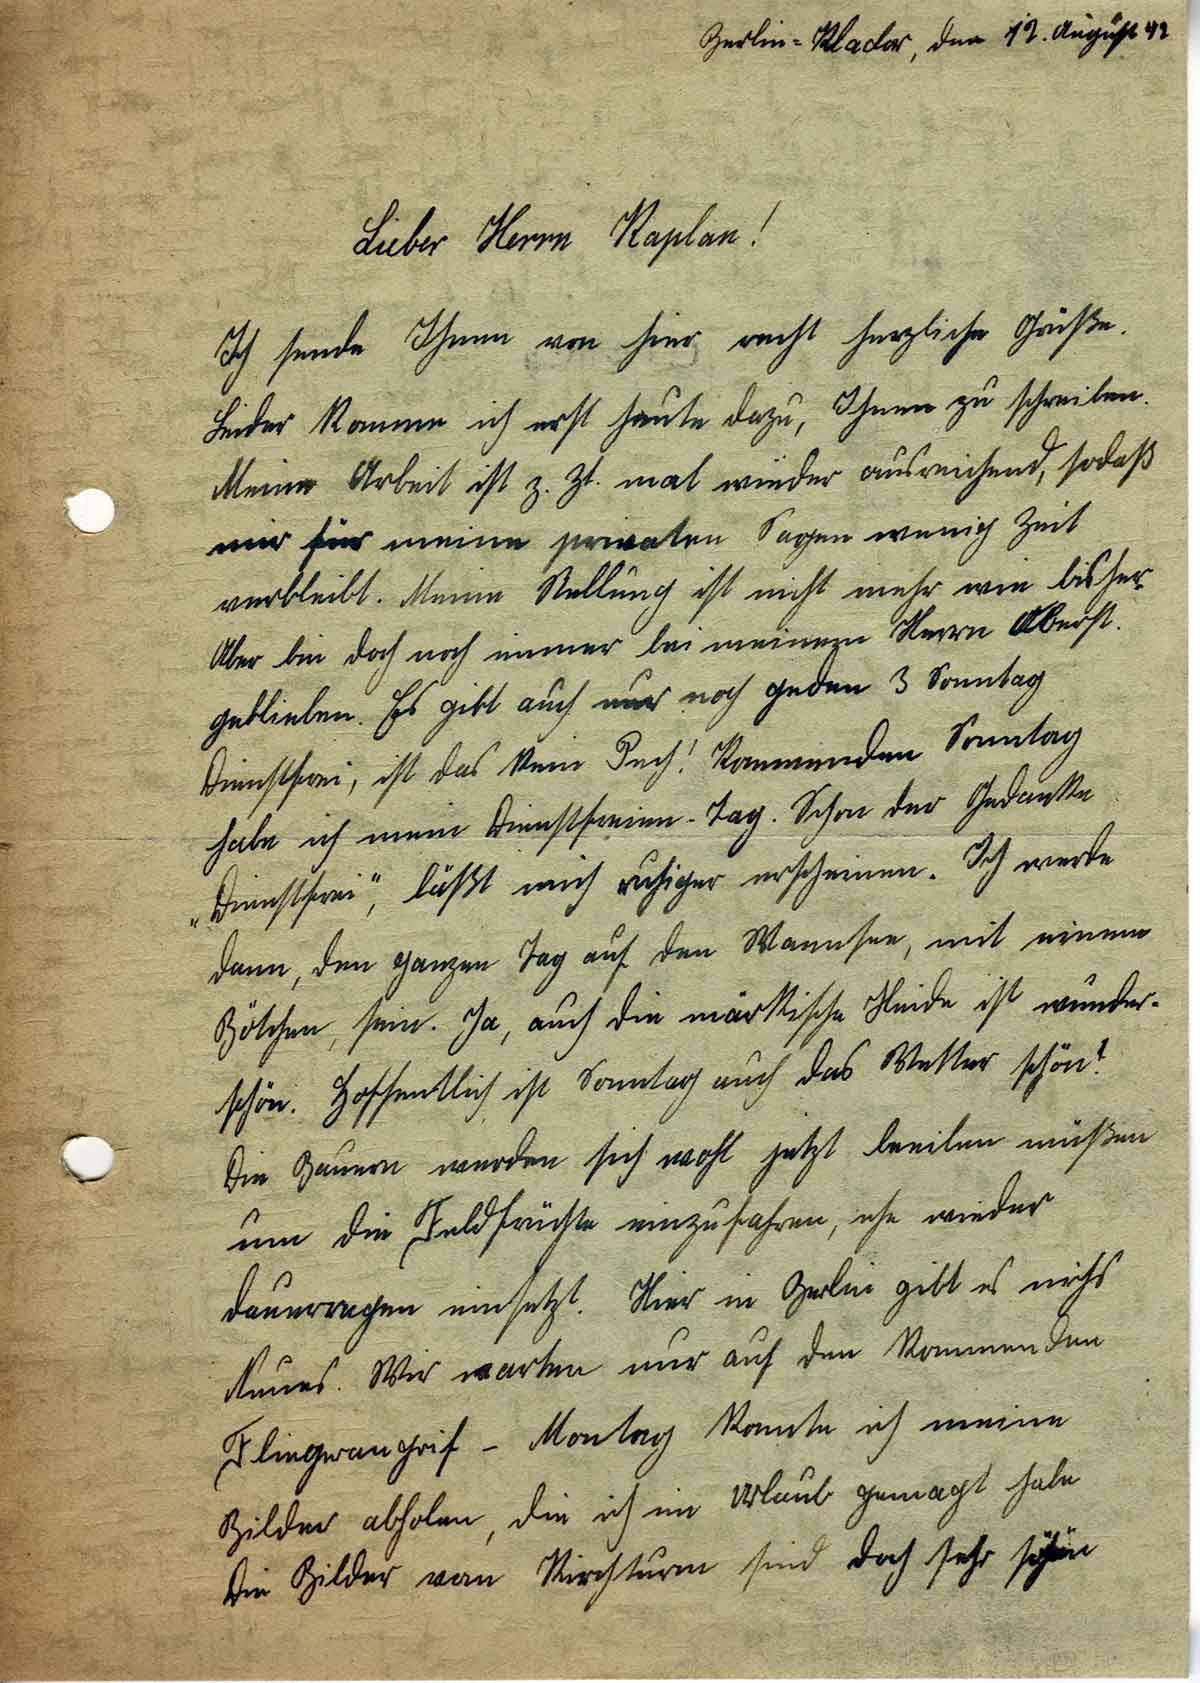 Berlin-Kladow, den 12. August 42
Lieber Herrn Kaplan!
Ich sende Ihnen von hier recht herzliche Grüße.
Leider komme ich erst heute dazu, Ihnen zu schreiben.
Meine Arbeit ist z. Zt. mal wieder ausreichend, sodaß
mir für meine privaten Sagen wenig Zeit
verbleibt. Meine Stellung ist nicht mehr wie bisher.
Aber bin doch noch immer bei meinem Herrn Oberst.
geblieben. Es gibt auch nur noch geden 3 Sonntag
Dienstfrei, ist das kein Pech! Kommenden Sonntag
habe ich mein Dienstfreien-Tag. Schon der Gedanke
„Dienstfrei“, läßt mich ruhiger erscheinen. Ich werde
dann, den ganzen Tag auf den Wannsee, mit einem
Bötchen, sein. Ja, auch die märkische Heide ist wunder-
schön. Hoffentlich ist Sonntag auch das Wetter schön?
Die Bauern werden sich wohl jetzt beeilen müßen
um die Feldfrüchte einzufahren, ehe wieder
dauerregen einsetzt. Hier in Berlin gibt es nichs
Neues. Wir warten nur auf den kommenden
Fliegerangrif - Montag konte ich meine
Bilder abholen, die ich im Urlaub gemagt habe
Die Bilder vom Kirchturm sind doch sehr schön